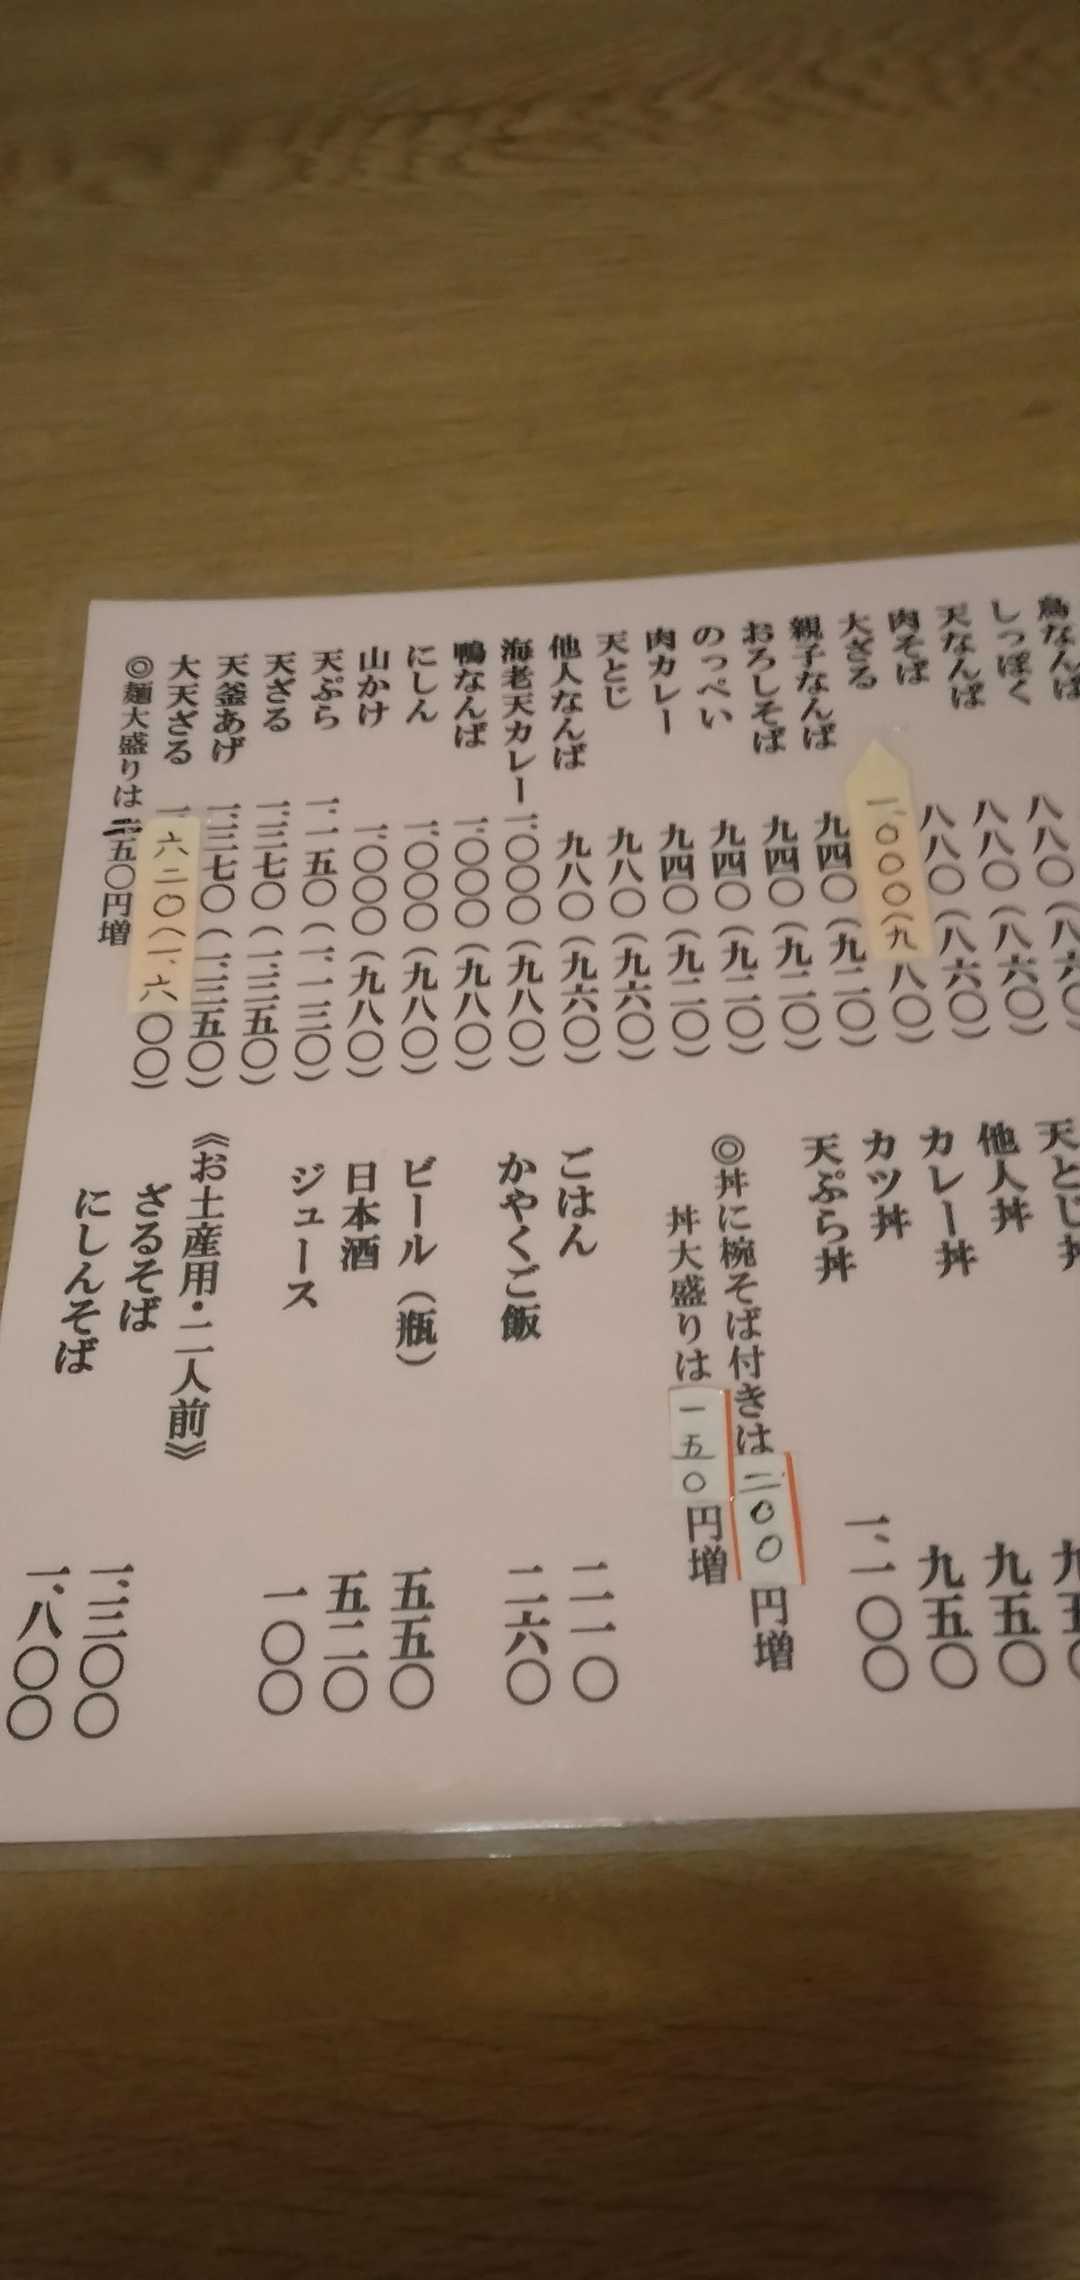 鳥なんば 八八〇(八六〇)
しっぽく 八八〇(八六〇)
天なんば 八八〇(八六〇)
肉そば 八八〇(八六〇)
大ざる 一、〇〇〇(九八〇)
親子なんば 九四〇(九二〇)
おろしそば 九四〇(九二〇)
のっぺい 九四〇(九二〇)
肉カレー 九四〇(九二〇)
天とじ 九八〇(九六〇)
他人なんば 九八〇(九六〇)
海老天カレー 一、〇〇〇(九八〇)
鴨なんば 一、〇〇〇(九八〇)
にしん 一、〇〇〇(九八〇)
山かけ 一、〇〇〇(九八〇)
天ぷら 一、一五〇(一、一三〇)
天ざる 一、三七〇(一、三五〇)
天釜あげ 一、三七〇(一、三五〇)
大天ざる 一、六二〇(一、六〇〇)
◎麺大盛りは 五〇円増
天とじ丼 九五〇
他人丼 九五〇
カレー丼 九五〇
カツ丼 九五〇
天ぷら丼 一、一〇〇
◎丼に椀そば付きは二〇〇円増
丼大盛りは一五〇円増
ごはん 二一〇
かやくご飯 二六〇
ビール(瓶) 五五〇
日本酒 五二〇
ジュース 一〇〇
《お土産用・二人前》
ざるそば 一、三〇〇
にしんそば 一、八〇〇